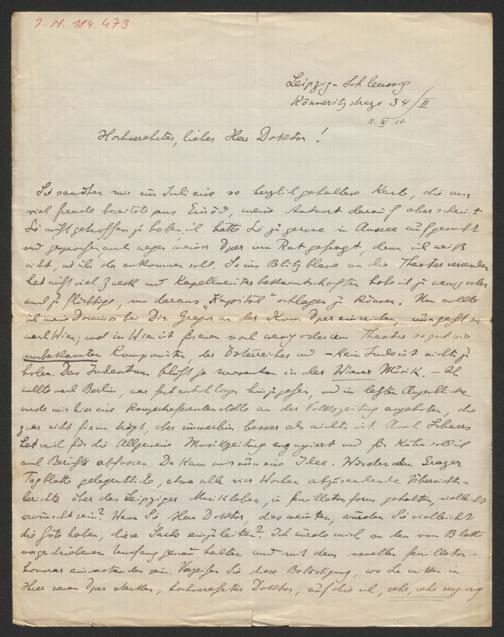 J. N. 184.473
Leipzig-Schleussig
Könneritzstrasse 34/II
11. XI. 10.
Hochverehrter, lieber Herr Doktor!
Sie sandten mir im Juli eine so herzlich gehaltene Karte, die mir
viel Freude bereitete aus Einöd, meine Antwort darauf aber scheint
Sie nicht getroffen zu haben, ich hätte Sie zu gerne in Aussee aufgesucht
und gesprochen, auch wegen meiner Oper um Rat gefragt, denn ich weiß
nicht, wo ich da ankommen soll. So ins Blitzblaue an die Theater versenden
hat nicht viel Zweck und Kapellmeisterbekanntschaften habe ich zu wenig oder
und zu flüchtige, um daraus „Kapital“ schlagen zu können. Nun wollte
ich mein Domröschen bei Dir. Gregor an der Kom. Oper einreichen, nun geht er
nach Wien; und in Wien ist für einen noch wenig oder dem Theater so gut wie
unbekannten Komponisten, der Österreicher und – kein Jude ist nichts zu
holen. Das Judentum blüht ja momentan in der Wiener Musik. – Ich
wollte nach Berlin, war hin, und im letzten Augenblicke
wurde mir hier eine Konzertreferentenstelle an der Volkszeitung angeboten, die
zwar nicht viel trägt, aber immerhin besser als nichts ist. Auch
hat mich für die Allgemeine Musikzeitung engagiert und so will ich
auch Berichte abfassen. Da kam mir nun eine Idee. Würden dem Grazer
Tagblatte gelegentliche, etwa alle vier Wochen abzusendende Übersichts-
berichte über das Leipziger Musikleben, in Feuilletonform gehalten, vielleicht
erwünscht sein? Wenn Sie Herr Doktor, das meinten, würden Sie vielleicht
die Güte haben, diese Sache einzuleiten? Ich würde mich an den vom Blatte
vorgeschriebenen Umfang genau halten und mit dem normalen Feuilleton-
honorar einverstanden sein. Verzeihen Sie diese Belästigung, wo Sie mitten in
Ihrer neuen Oper stecken, hochverehrter Doktor, auf die ich, sehr, sehr neugierig